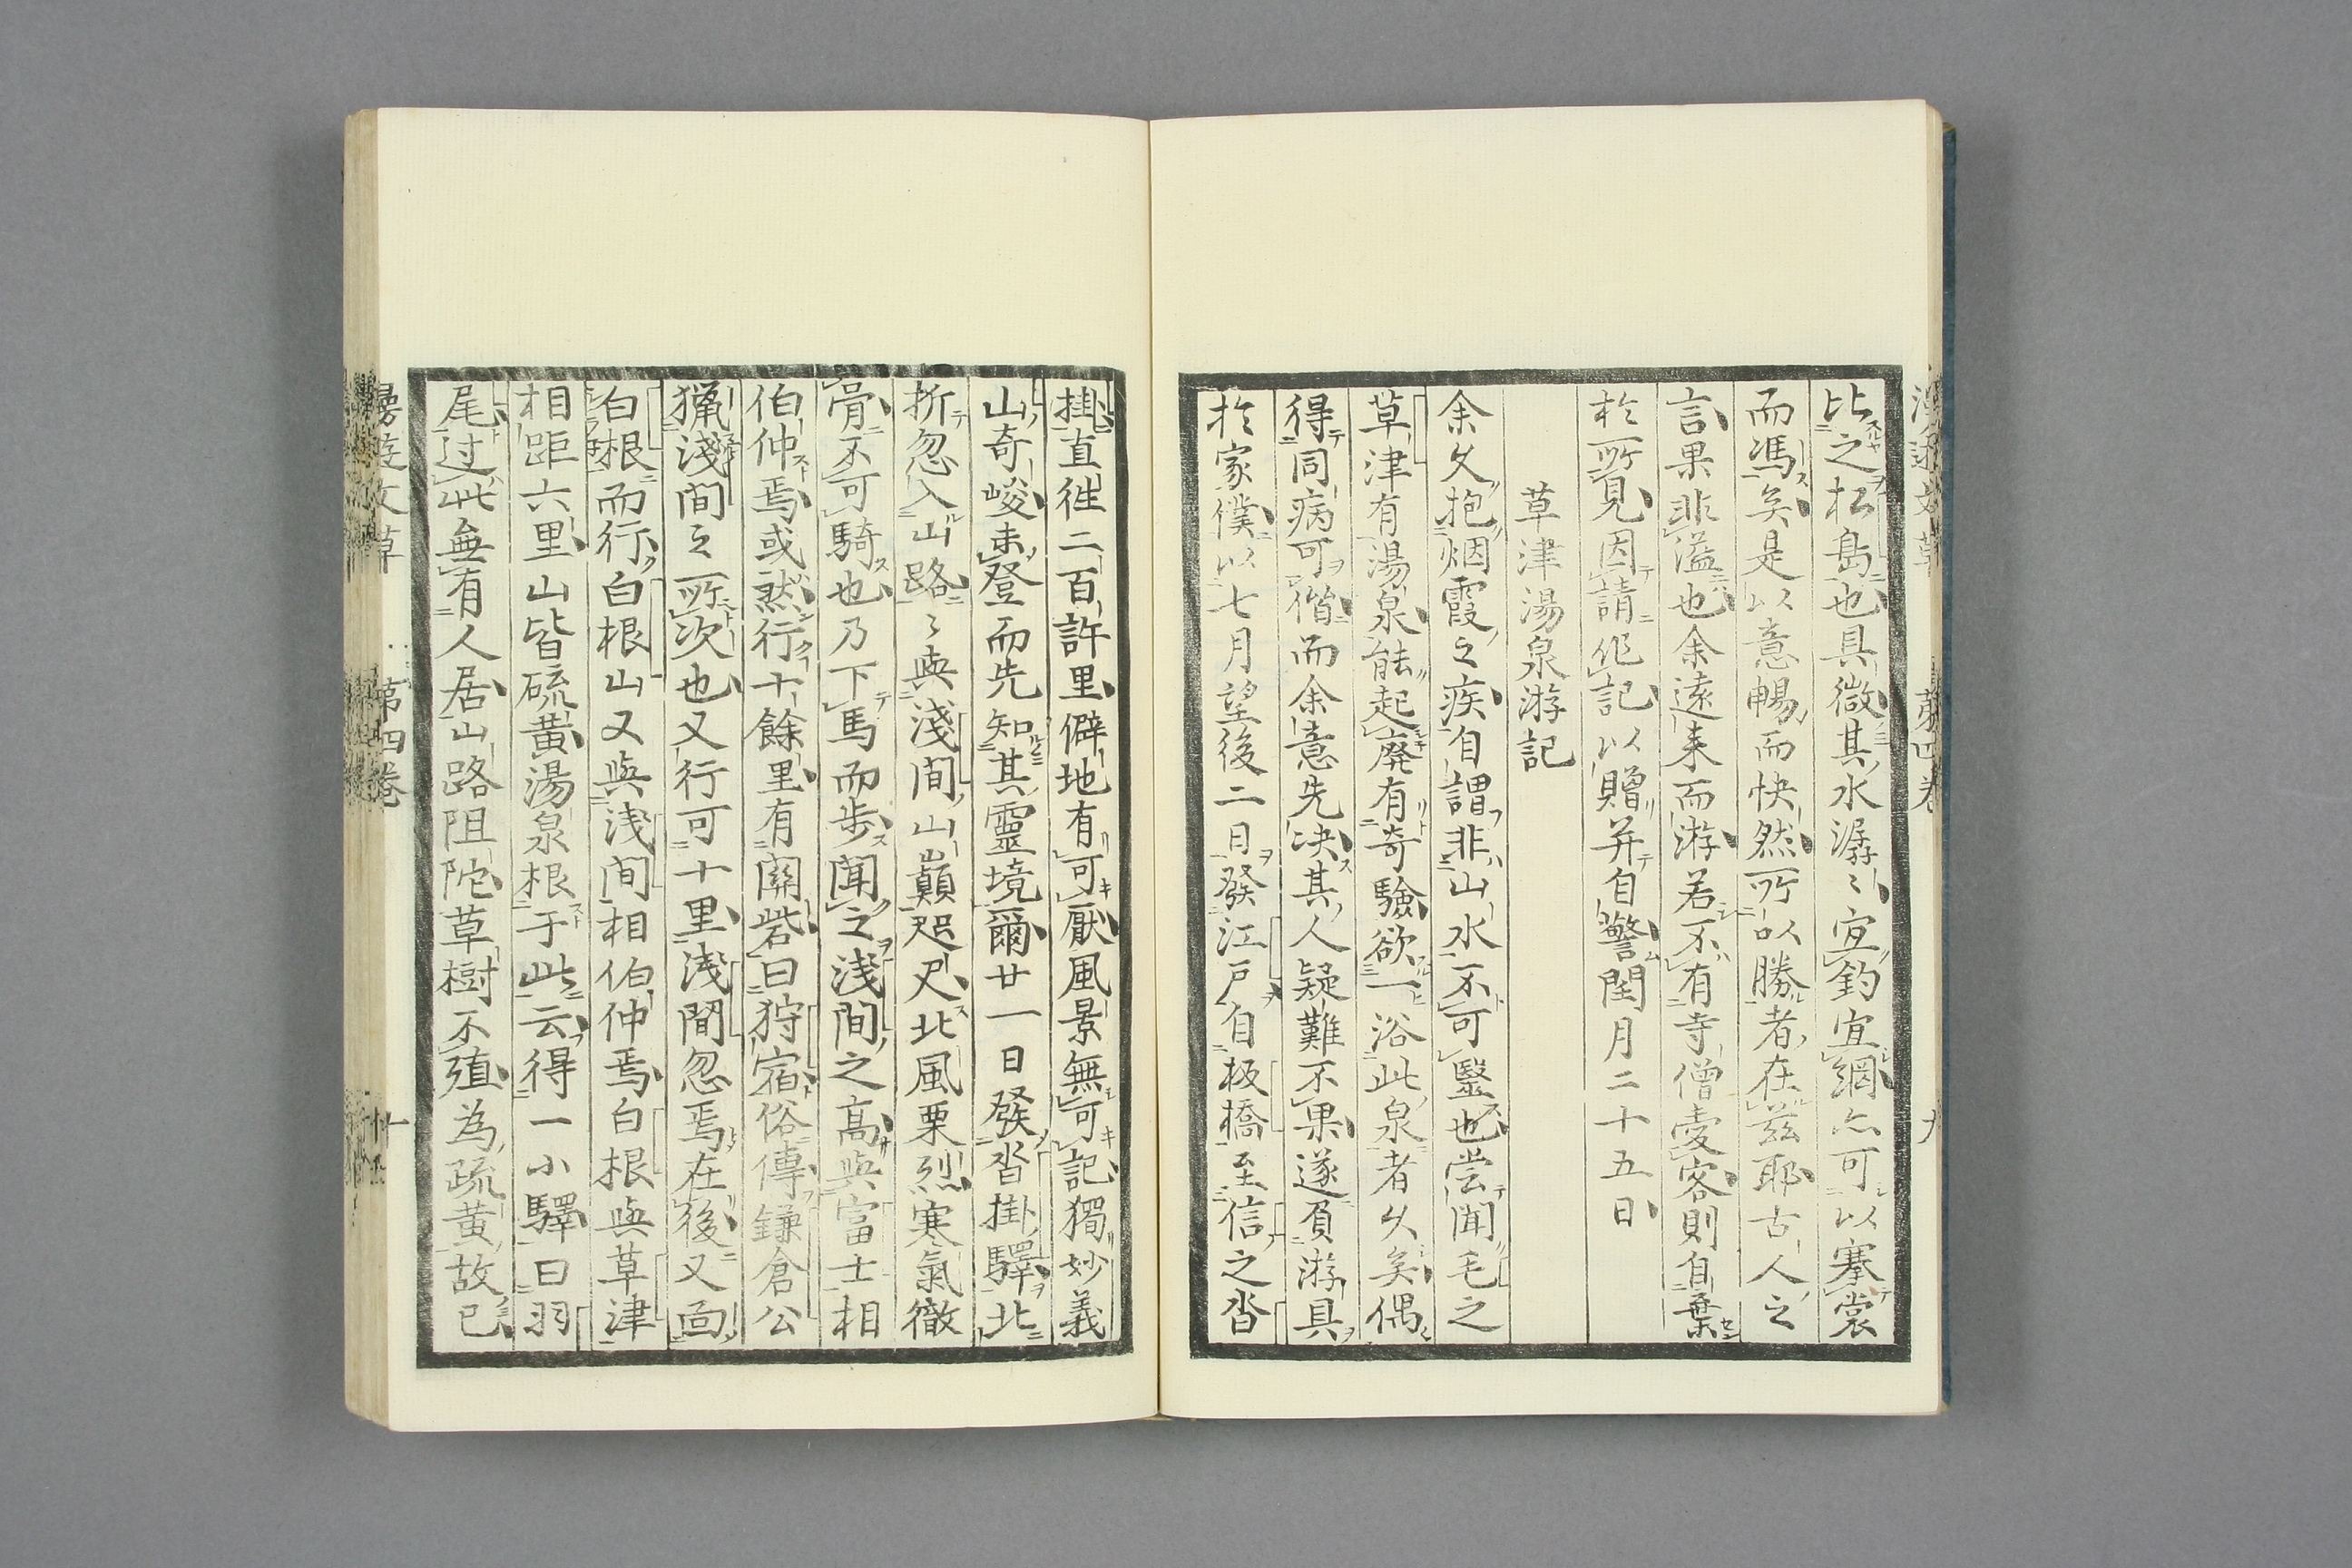 比之松島也具微其水潺〻宜釣宜網亦可以搴裳
而馮矣是以意暢而快然所以勝者在茲耶古人之
言果非溢也余遠来而游若不有寺僧愛客則自棄
於所覓因請作記以贈并自警閏月二十五日
草津湯泉游記
余久抱烟霞之疾自謂非山水不可毉也嘗聞毛之
草津有湯泉能起廢有奇驗欲一浴此泉者久矣偶
得同病可偕而余意先决其人疑難不果遂負游具
於家僕以七月望後二日發江戸自板橋至信之沓
掛直徃二百許里僻地有可厭風景無可記獨妙義
山奇峻未登而先知其靈境爾廿一日發沓掛驛北
折忽入山路〻與淺間山巔咫尺北風栗烈寒氣徹
骨不可騎也乃下馬而歩聞之浅間之高與富士相
伯仲焉或然行十餘里有關砦曰狩宿俗傳鎌倉公
猟淺間之所次也又行可十里浅間忽焉在後又面
白根而行白根山又與浅間相伯仲焉白根與草津
相距六里山皆硫黄湯泉根于此云得一小驛曰羽
尾过此無有人居山路阻陀草樹不殖為疏黄故已
漫遊文草 第四巻 十